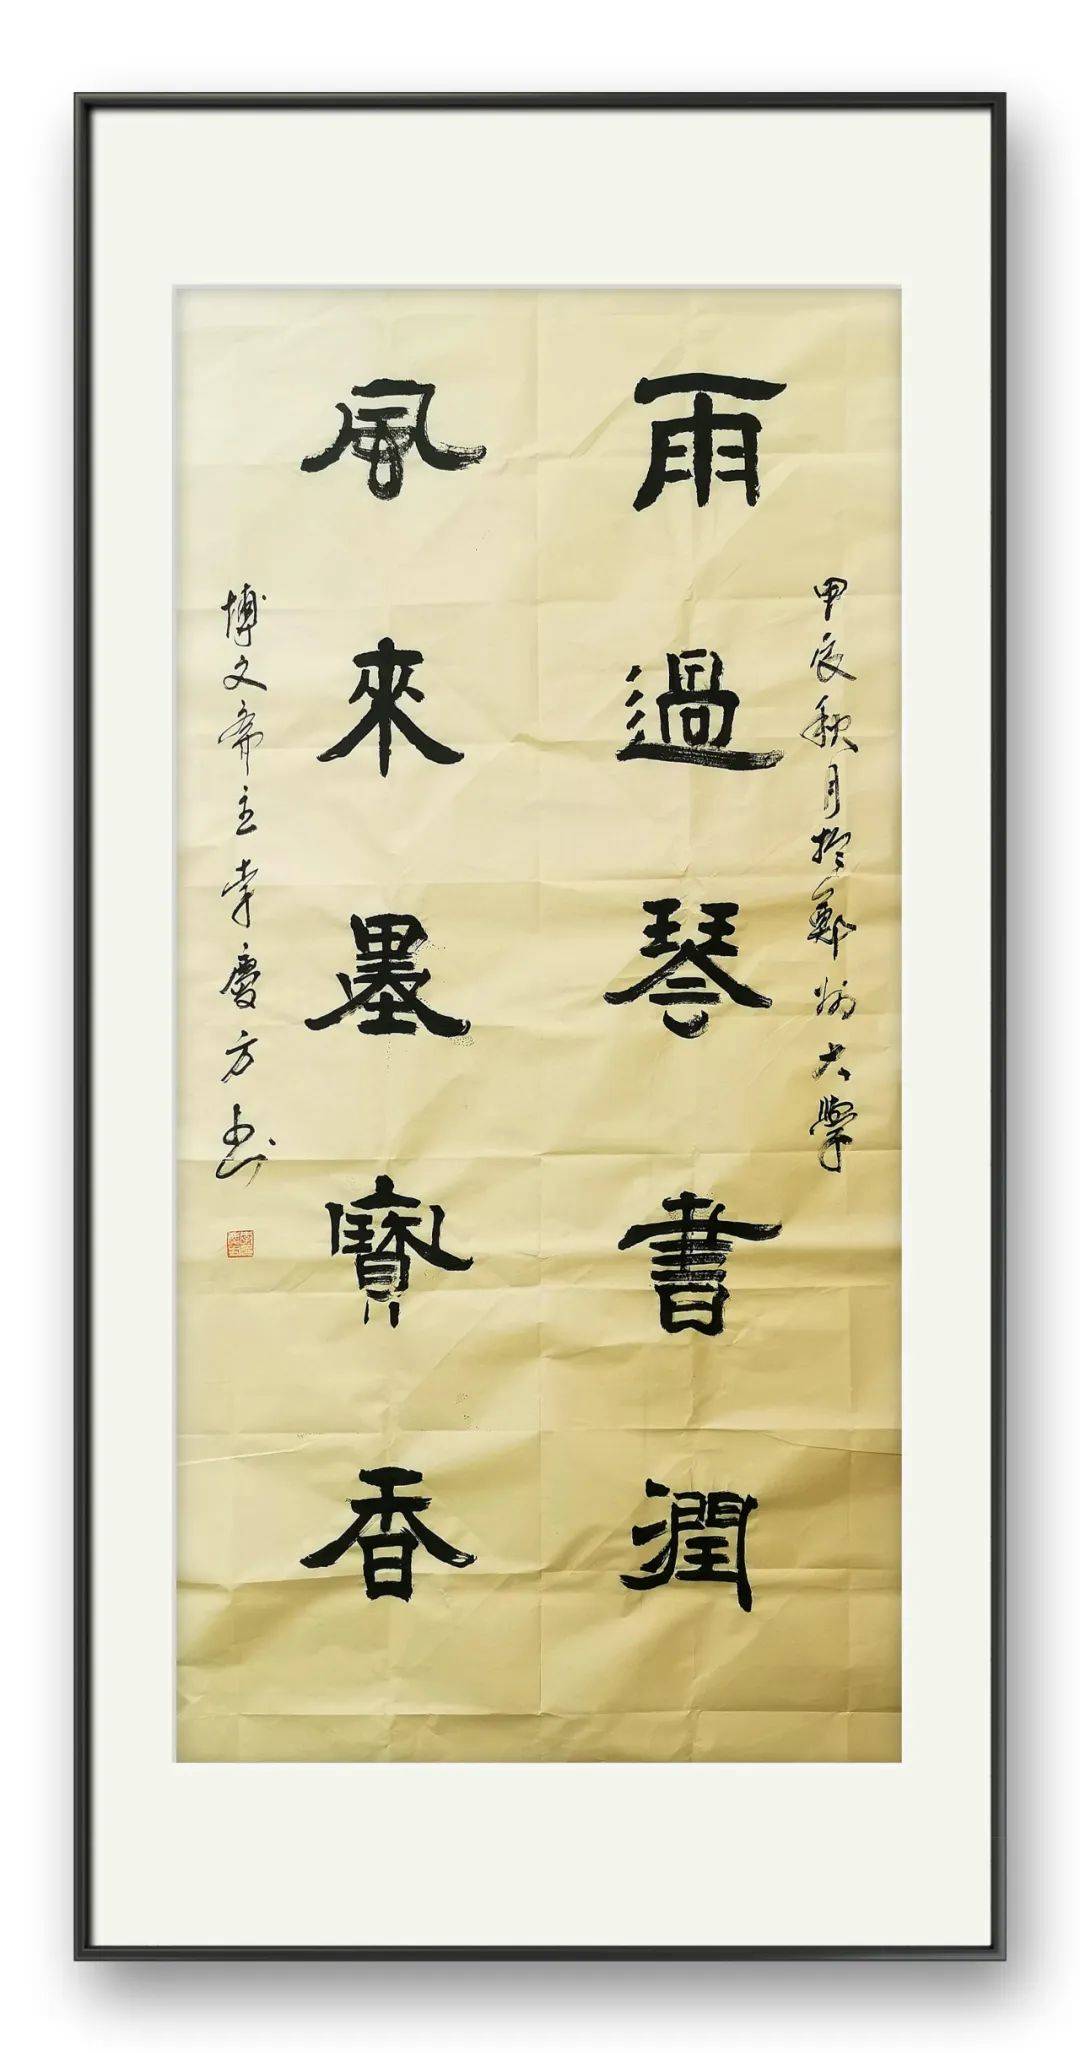 甲辰秋月於鄭州大學
雨過琴書潤
風來墨寶香
博文齋主李慶方书